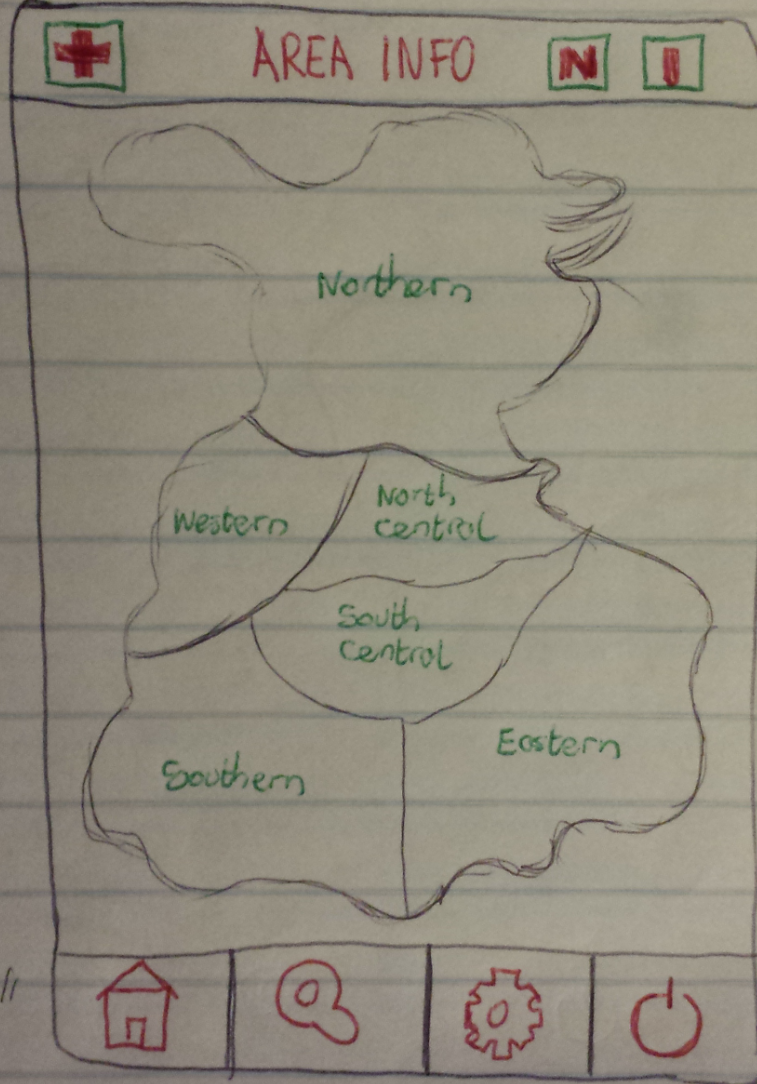 AREA INFO
N
I
Northern
Western
North
Central
South
Central
Southern
Eastern